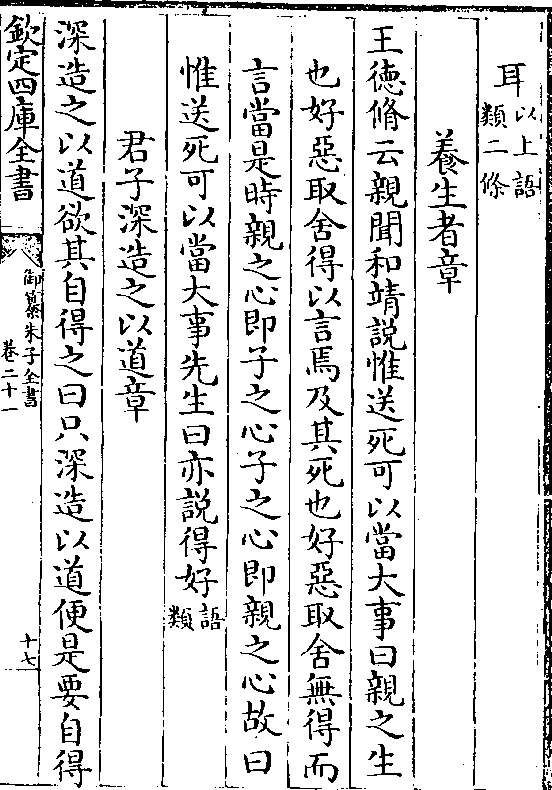 耳以上語類二條
養生者章
王德脩云親聞和靖説惟送死可以當大事曰親之生
也好惡取舍得以言焉及其死也好惡取舍無得而
言當是時親之心即子之心子之心即親之心故曰
惟送死可以當大事先生曰亦説得好語類
君子深造之以道章
深造之以道欲其自得之曰只深造以道便是要自得
欽定四庫全書
御纂朱子全書
卷二十一
十七